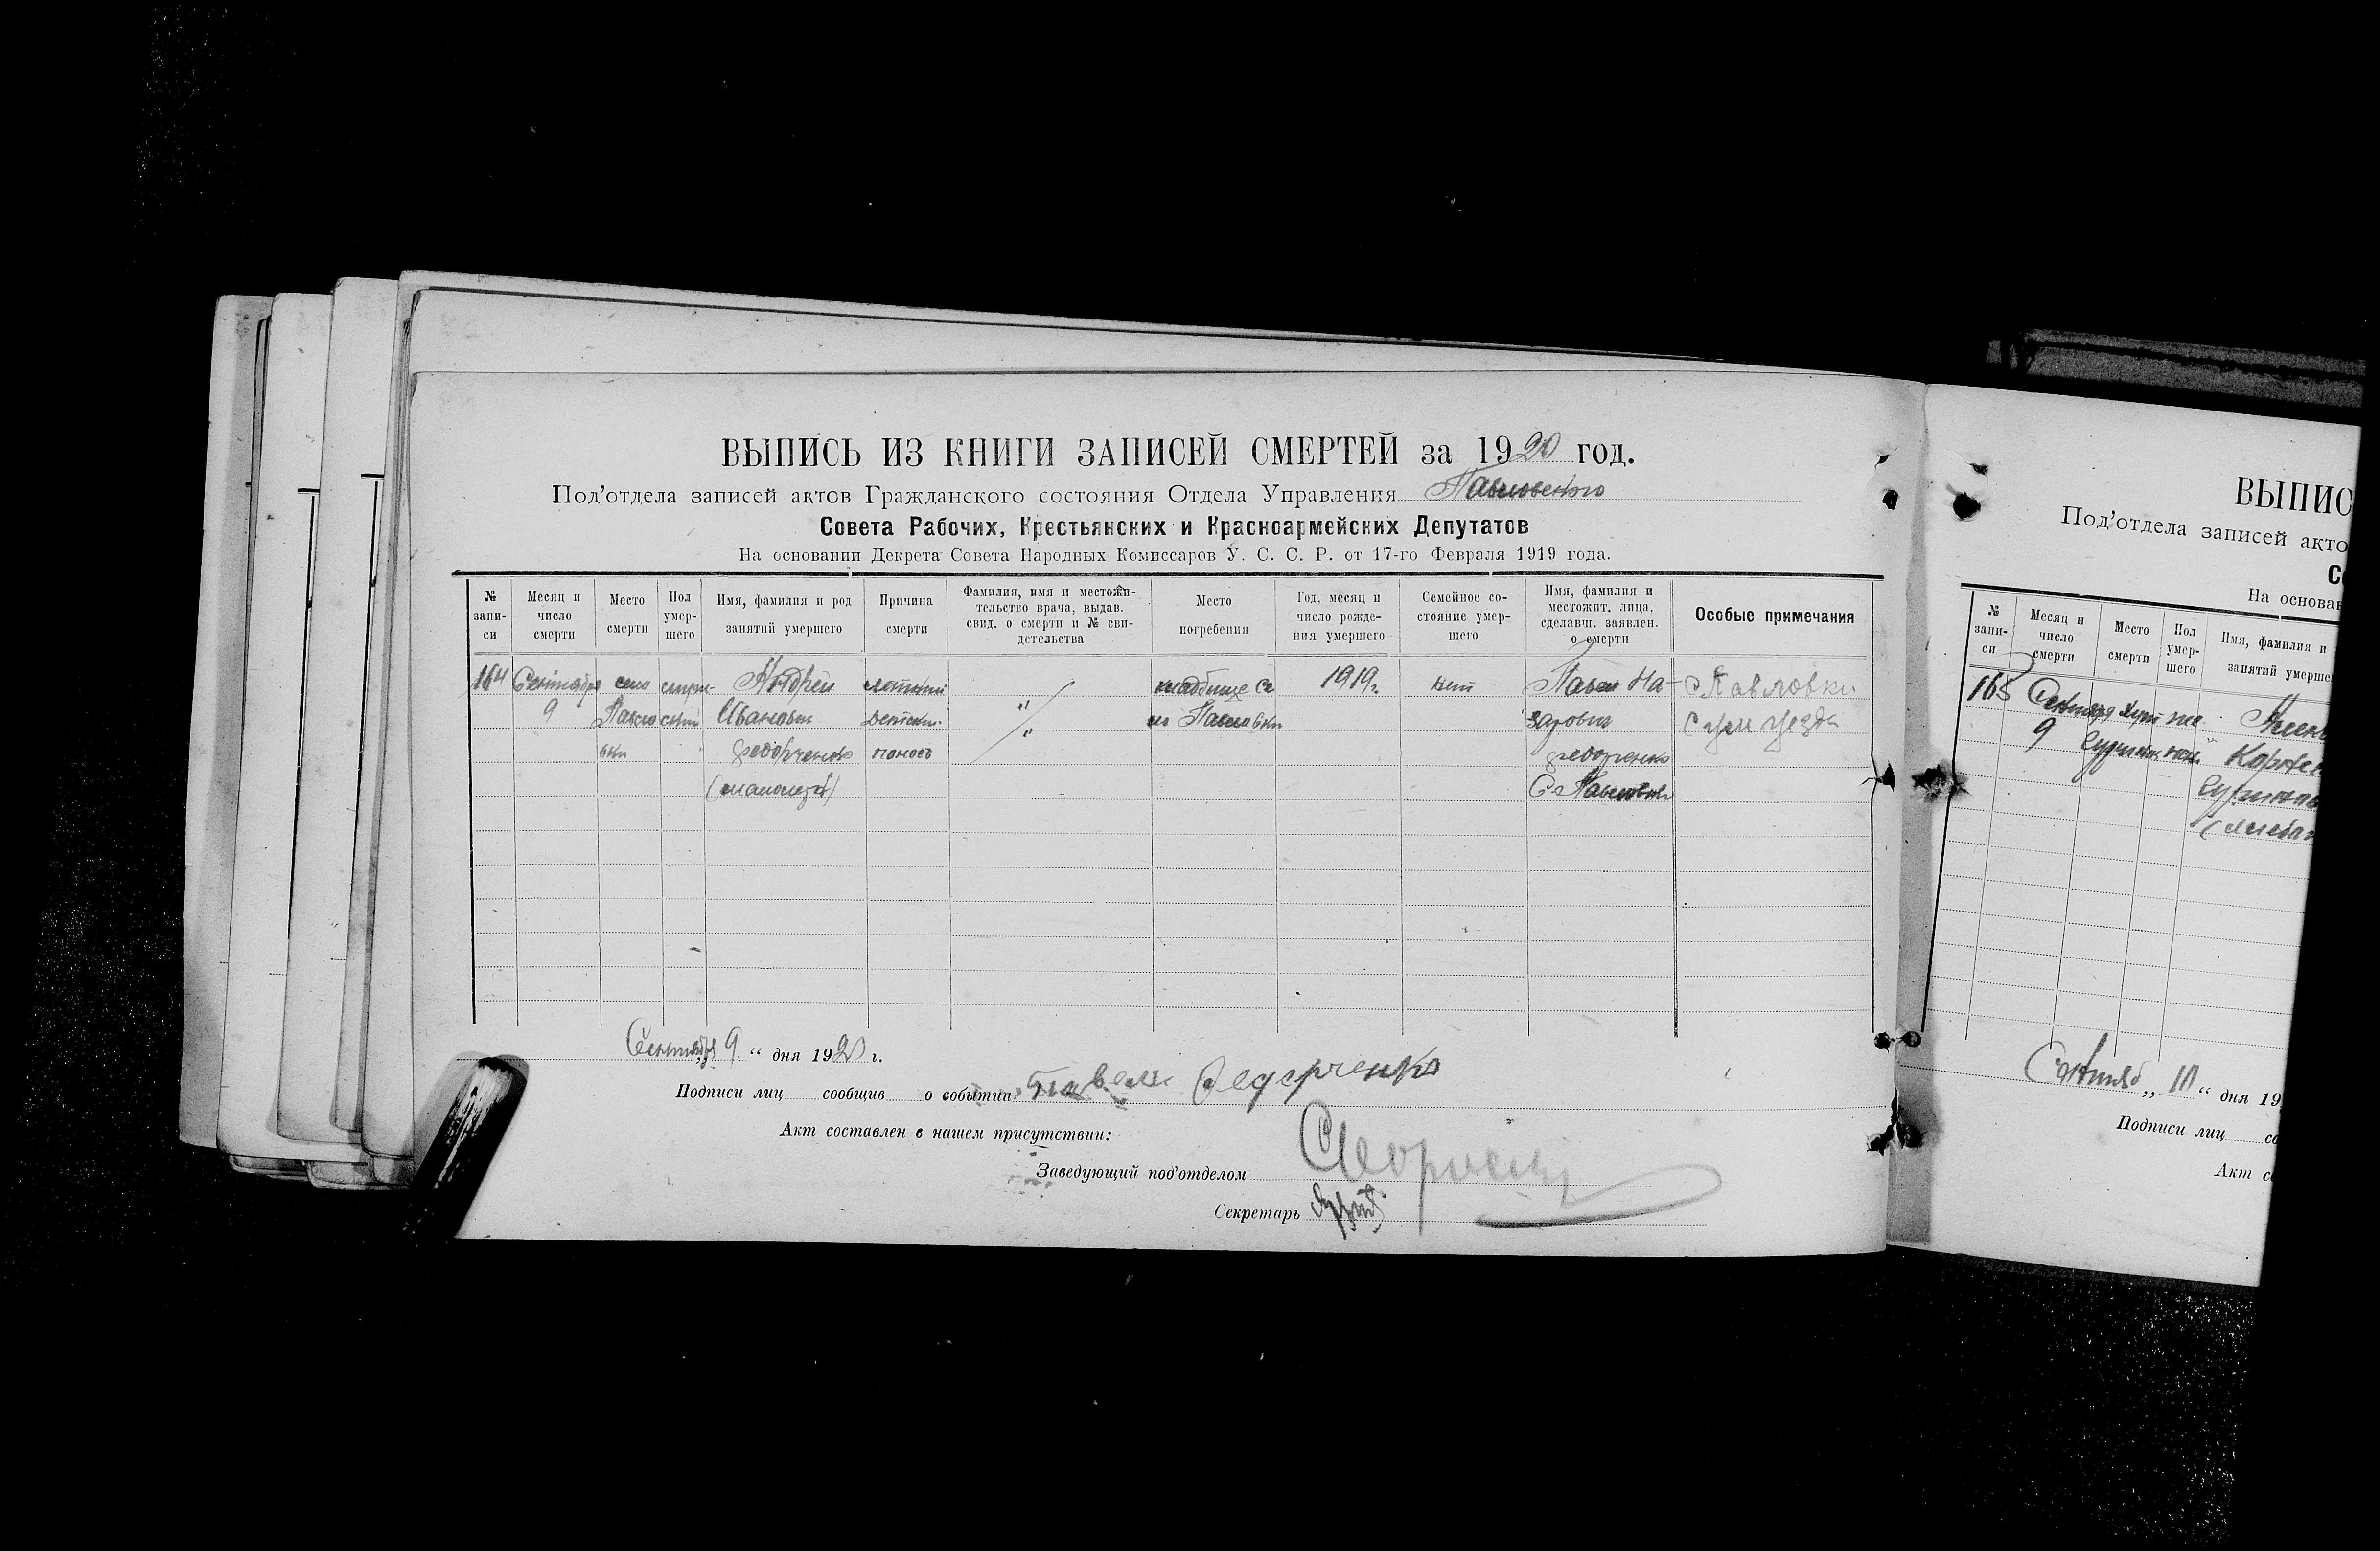 ВЫПИСЬ ИЗ КНИГИ ЗАПИСЕЙ СМЕРТЕЙ за 1920 год.
Под'отдела записей актов Гражданского состояния Отдела Управления Павловского
Совета Рабочих, Крестьянских и Красноармейских Депутатов
На основании Декрета Совета Народных Комиссаров У. С. С. Р. от 17-го Февраля 1919 года.
№ запи-си
Месяц и число смерти
Место смерти
Пол умер-шего
Имя, фамилия и род занятий умершего
Причина смерти
Фамилия, имя и местожи-
тельство врача, выдав.
свид. о смерти и № сви-
детельства
Место погребения
Год, месяц и число рожде-ния умершего
Семейное со-стояние умер-шего
Имя, фамилия и
местожит. лица,
сделавш. заявлен.
о смерти
Особые примечания
164
Сентября
9
село
Павло
вки
Андрей
Иванович
Федорченко
Детский
понос
"
"
кладбище се
ло Павловки
1919 г.
нет
Павел На-
зарович
Федорченко
С. Павловки
С Павловки
Сум уезда
Сентября 9 “ дня 1920 г.
Подписи лиц сообщив о событии Павел Федорченко
Акт составлен в нашем присутствии:
Заведующий под'отделом
Секретарь
ВЫПИС
Под'отдела записей акто
Со
На основан
№ запи-си
Месяц и число смерти
Место смерти
Пол умер-шего
Имя, фамилия и
занятий умерше
165
9
„ 10 “ дня 19
Подписи лиц со
Акт со